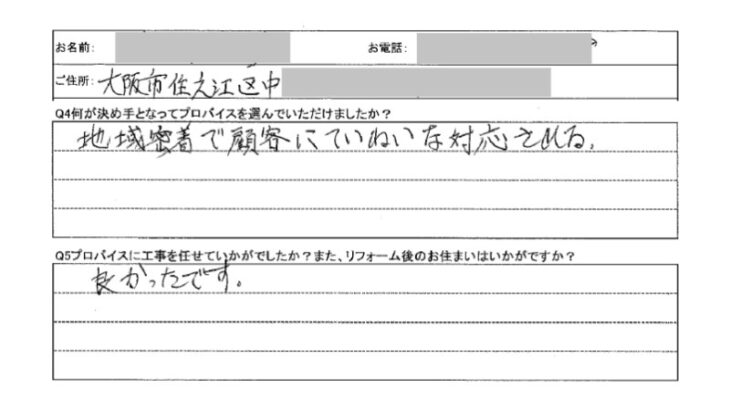 お名前: お電話:
ご住所: 大阪市住之江区中
Q4何が決め手となってプロバイスを選んでいただけましたか?
地域密着で顧客にていねいな対応される。
Q5プロバイスに工事を任せていかがでしたか?また、リフォーム後のお住まいはいかがですか?
良かったです。